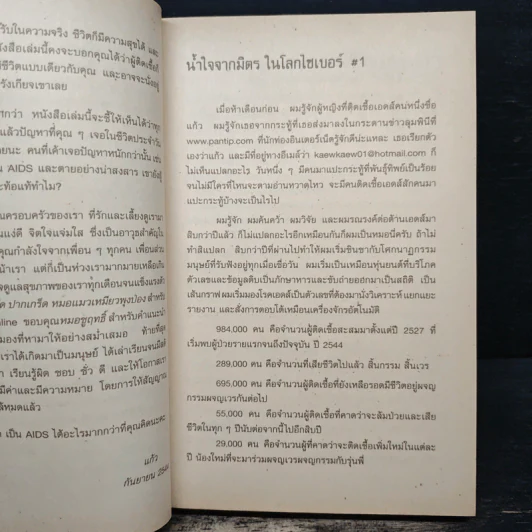 รับในความจริง ชีวิตก็มีความสุขได้ และ
งสือเล่มนี้คงจะบอกคุณได้ว่าผู้ติดเชื้อก็
ชีวิตแบบเดียวกับคุณ และอาจจะนั่งอยู่
รังเกียจเขาเลย
กว่า หนังสือเล่มนี้จะชี้ให้เห็นได้ว่าทุก
แล้วปัญหาที่คุณ ๆ เจอในชีวิตประจำวัน
ายนะ คนที่เค้าเจอปัญหาหนักกว่านั้น เช่น
น AIDS และตายอย่างน่าสงสาร เขายังสู้
ะท้อแท้ทำไม?
ณครอบครัวของเรา ที่รักและเลี้ยงดูเรามา
แง่ดี จิตใจแจ่มใส ซึ่งเป็นอาวุธสำคัญใน
คุณกำลังใจจากเพื่อน ๆ ทุกคน เพื่อนส่วน
น้าเรา แต่ก็เป็นห่วงเรามากมายเหลือเกิน
จดูแลสุขภาพของเราทุกเดือนจนแข็งแรงตัว
ปากเกร็ด หมอแมวเหมียวพุงป่อง สำหรับ
nline ขอบคุณหมอชูฤทธิ์ สำหรับคำแนะนำ
มองที่หามาให้อย่างสม่ำเสมอ ท้ายที่สุด
เราได้เกิดมาเป็นมนุษย์ ได้เล่าเรียนจนมีสติ
า เรียนรู้ผิด ชอบ ชั่ว ดี และให้โอกาสเรา
มีค่าและมีความหมาย โดยการให้สัญญาณ
ลัหมดแล้ว
ง เป็น AIDS ได้อะไรมากกว่าที่คุณคิดนะคะ
แก้ว
กันยายน 2544
น้ำใจจากมิตร ในโลกไซเบอร์ #1
เมื่อห้าเดือนก่อน ผมรู้จักผู้หญิงที่ติดเชื้อเอดส์คนหนึ่งชื่อ
แก้ว ผมรู้จักเธอจากกระทู้ที่เธอส่งมาลงในกระดานข่าวลุมพินีที่
www.pantip.com ที่นักท่องอินเตอร์เน็ตรู้จักดีน่ะแหละ เธอเรียกตัว
เองว่าแก้ว และมีที่อยู่ทางอีเมล์ว่า kaewkaew01@hotmail.com ก็
ไม่เห็นแปลกอะไร วันหนึ่ง ๆ มีคนมาแปะกระทู้ที่พันธุ์ทิพย์เป็นร้อย
จนไม่มีใครที่ไหนจะตามอ่านหวาดไหว จะมีคนติดเชื้อเอดส์สักคนมา
แปะกระทู้บ้างจะเป็นไรไป
ผมรู้จัก ผมค้นคว้า ผมวิจัย และผมรณรงค์ต่อต้านเอดส์มา
สิบกว่าปีแล้ว ก็ไม่แปลกอะไรอีกเหมือนกันก็ผมเป็นหมอนี่ครับ ถ้าไม่
ทำสิแปลก สิบกว่าปีที่ผ่านไปทำให้ผมเริ่มชินชากับโศกนาฏกรรม
มนุษย์ที่รับฟังอยู่ทุกเมื่อเชื่อวัน ผมเริ่มเป็นเหมือนหุ่นยนต์ที่บริโภค
ตัวเลขและข้อมูลดิบเป็นภักษาหารและขับถ่ายออกมาเป็นสถิติ เป็น
เส้นกราฟผมเริ่มมองโรคเอดส์เป็นตัวเลขที่ต้องมานั่งวิเคราะห์ แยกแยะ
รายงาน และสั่งการตอบโต้เหมือนเครื่องจักรอัตโนมัติ
984,000 คน คือจำนวนผู้ติดเชื้อสะสมมาตั้งแต่ปี 2527 ที่
เริ่มพบผู้ป่วยรายแรกจนถึงปัจจุบัน ปี 2544
289,000 คน คือจำนวนที่เสียชีวิตไปแล้ว สิ้นกรรม สิ้นเวร
695,000 คน คือจำนวนผู้ติดเชื้อที่ยังเหลือรอดมีชีวิตอยู่ผจญ
กรรมผจญเวรกันต่อไป
55,000 คน คือจำนวนผู้ติดเชื้อที่คาดว่าจะล้มป่วยและเสีย
ชีวิตในทุก ๆ ปีนับต่อจากนี้ไปอีกสิบปี
29,000 คน คือจำนวนผู้ที่คาดว่าจะติดเชื้อเพิ่มใหม่ในแต่ละ
ปี น้องใหม่ที่จะมาร่วมผจญเวรผจญกรรมกับรุ่นพี่